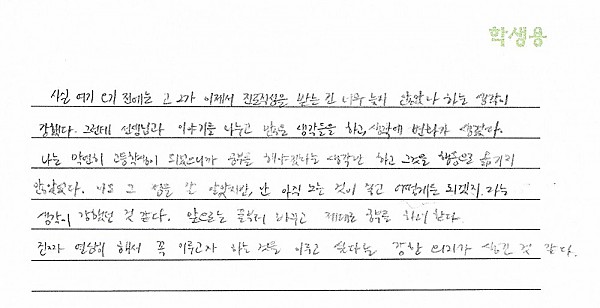 학생용
사실 여기 오기 전에는 고 2가 이제서 진로적성을 찾는 건 너무 늦지 않았나 하는 생각이
강했다. 그런데 선생님과 이야기를 나누고 많은 생각들을 하고, 생각에 변화가 생겼다.
나는 막연히 고등학생이 되었으니까 공부를 해야겠다는 생각만 하고 그것을 행동으로 옮기지
않았었다. 나도 그 점을 잘 알았지만, 난 아직 고 어떻게든 되겠지. 라는
생각이 강했던 것 같다. 앞으로는 제대로 하려 한다.
진짜 열심히 해서 꼭 이루고자 하는 것을 이루고 싶다는 강한 의지가 생긴 것 같다.